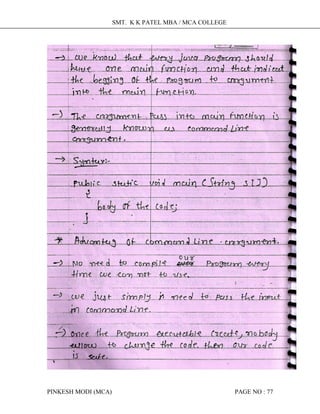 SMT. K K PATEL MBA / MCA COLLEGE
→ we know that every java Program should
have one main function and that indicat
the begging of the program to cargument
into the main function.
→ The cargument Pass into main function is
generally known as command Line
cargument.
→ Syntax:-
Public static void main (String s[])
{
body of the code;
}
* Advantag of command Line cargument.
→ No need to compile our Program every
time we can not to use.
→ we just simply need to pass the input
in command Line.
→ once the Program executable create, nobody
allow to change the code. then our code
is safe.
PINKESH MODI (MCA) PAGE NO : 77